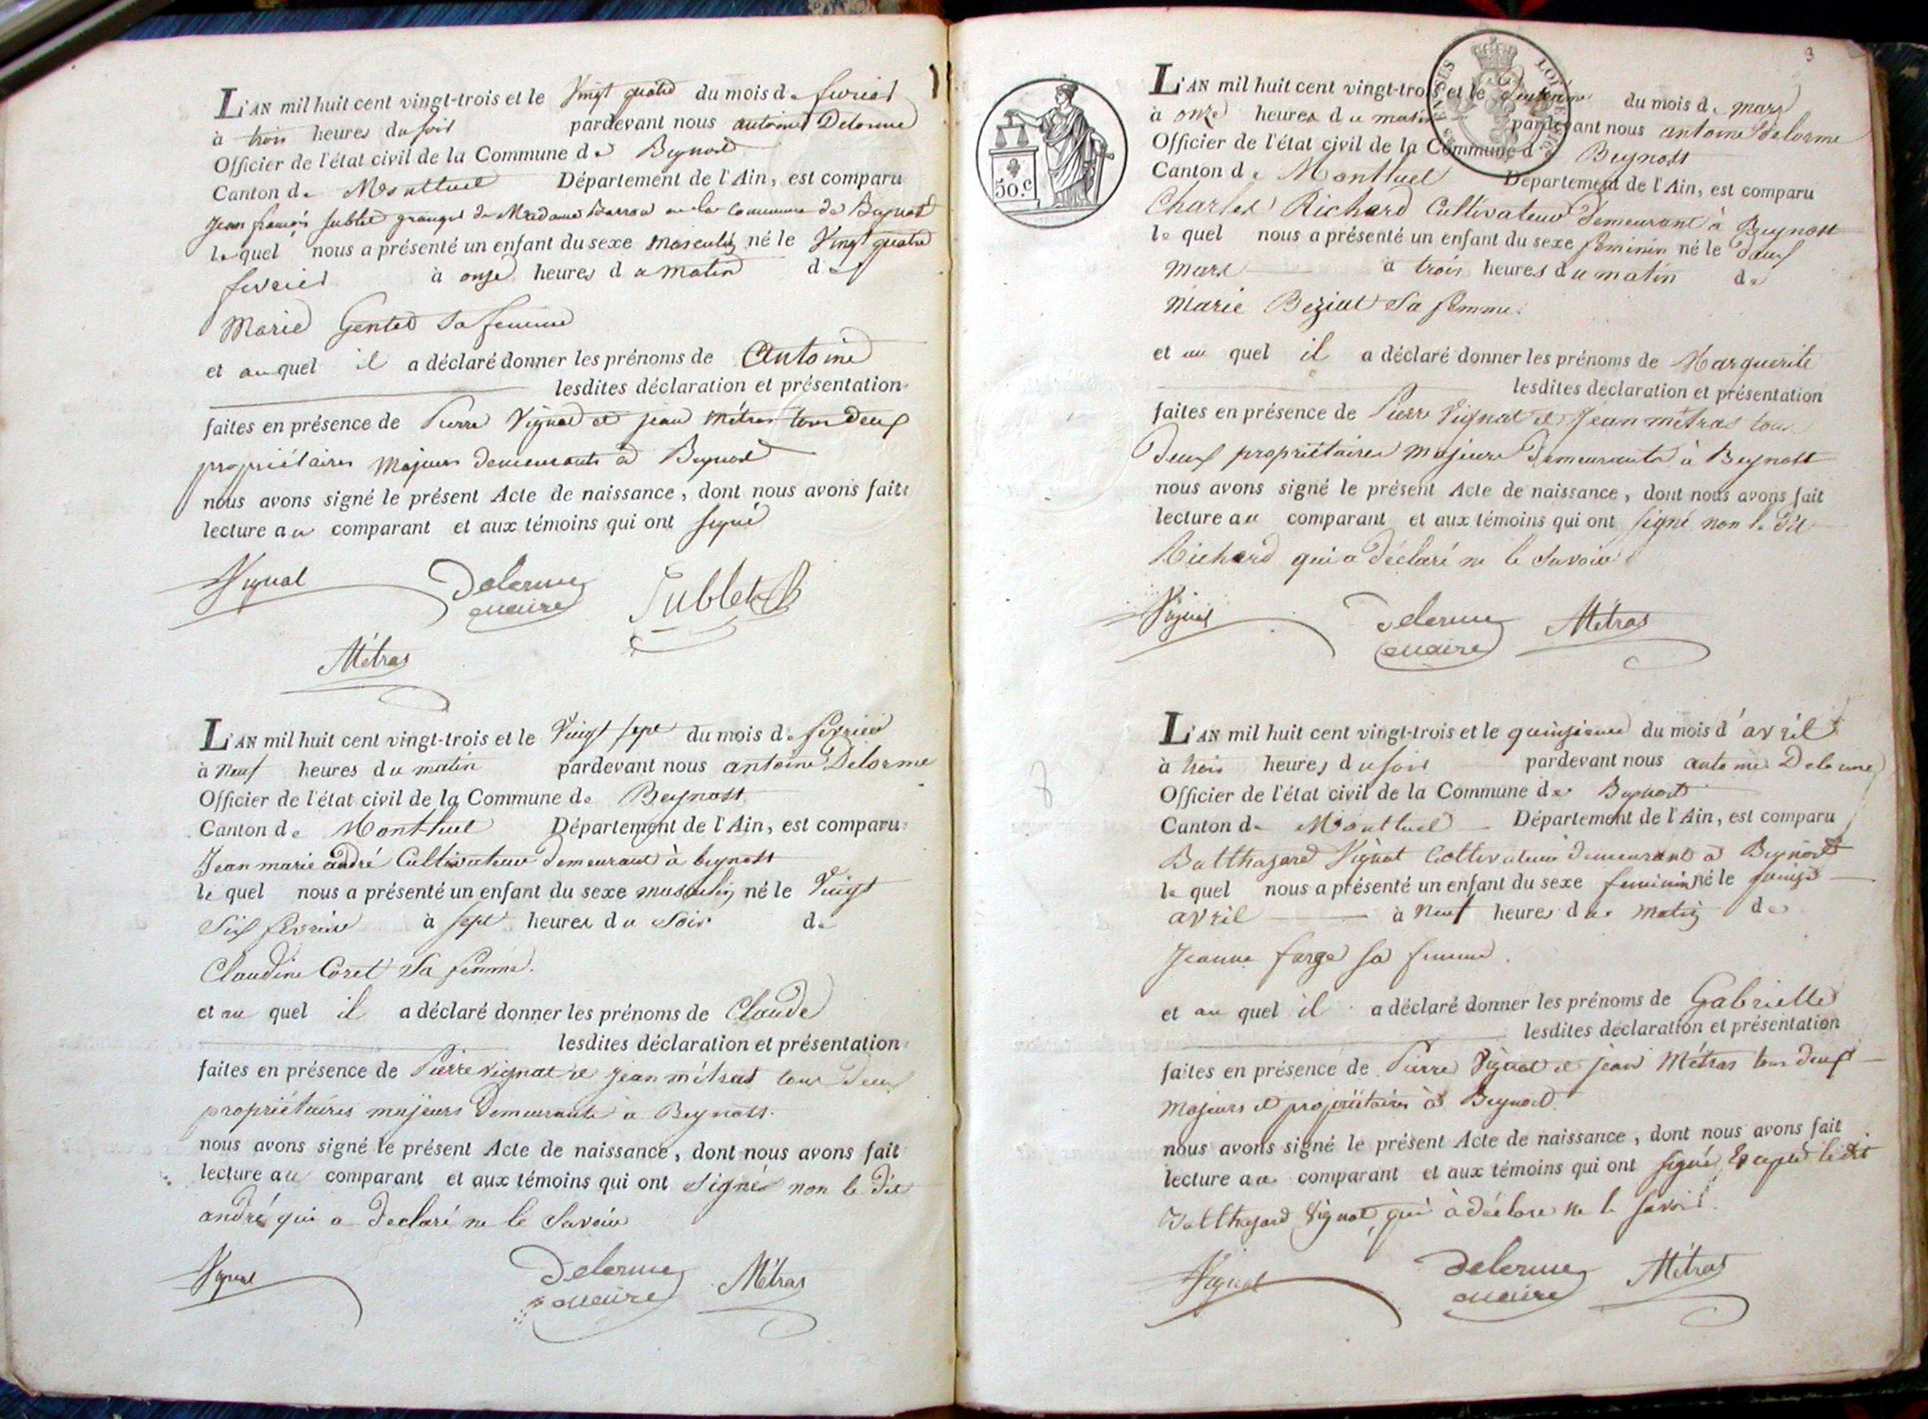 L'AN mil huit cent vingt-trois et le Vingt quatre du mois de fevrier
à trois heures du soir pardevant nous antoine Delorme
Officier de l'état civil de la Commune de Beynost
Canton de Montluel Département de l'Ain, est comparu
Jean françois Jublet granger de Madame en la Commune de Beynost
lequel nous a présenté un enfant du sexe masculin né le Vingt quatre
fevrier à onze heures du matin de
Marie Gentet sa femme
et auquel il a déclaré donner les prénoms de Antoine
lesdites déclaration et présentation
faites en présence de Pierre Vignat et jean Métras tous deux
propriétaires majeurs demeurants à Beynost
nous avons signé le présent Acte de naissance, dont nous avons fait
lecture au comparant et aux témoins qui ont signé
Vignat Delorme maire Jublet
Métras
L'AN mil huit cent vingt-trois et le Vingt sept du mois de fevrier
à neuf heures du matin pardevant nous antoine Delorme
Officier de l'état civil de la Commune de Beynost
Canton de Montluel Département de l'Ain, est comparu
Jean marie andré Cultivateur demeurant à beynost
le quel nous a présenté un enfant du sexe masculin né le Vingt
Six fevrier à sept heures du soir de
Claudine Coret sa femme.
et au quel il a déclaré donner les prénoms de Claude
lesdites déclaration et présentation
faites en présence de Pierre vignat et jean métras tous deux
propriétaires majeurs demeurants à Beynost.
nous avons signé le présent Acte de naissance, dont nous avons fait
lecture au comparant et aux témoins qui ont signé non le dit
andré qui a declaré ne le savoir
Vignat Delorme maire Métras
3
50.c
L'AN mil huit cent vingt-trois et le deuxieme du mois de mars
à onze heures du matin pardevant nous antoine delorme
Officier de l'état civil de la Commune de Beynost
Canton de Montluel Département de l'Ain, est comparu
Charles Richard Cultivateur demeurant à Beynost
le quel nous a présenté un enfant du sexe feminin né le deux
mars à trois heures du matin de
Marie Beziat sa femme.
et au quel il a déclaré donner les prénoms de Marguerite
lesdites déclaration et présentation
faites en présence de Pierre Vignat et Jean métras tous
deux propriétaires majeurs demeurants à Beynost
nous avons signé le présent Acte de naissance, dont nous avons fait
lecture au comparant et aux témoins qui ont signé non le dit
Richard qui a déclaré ne le savoir
Vignat Delorme maire Métras
L'AN mil huit cent vingt-trois et le quinzieme du mois d'avril
à trois heures du soir pardevant nous antoine Delorme
Officier de l'état civil de la Commune de Beynost
Canton de Montluel Département de l'Ain, est comparu
Balthazard Vignat Cultivateur demeurant à Beynost
le quel nous a présenté un enfant du sexe feminin né le quinze
avril à neuf heures du matin de
Jeanne farge sa femme.
et au quel il a déclaré donner les prénoms de Gabrielle
lesdites déclaration et présentation
faites en présence de Pierre Vignat et jean Métras tous deux
majeurs et propriétaires à Beynost.
nous avons signé le présent Acte de naissance, dont nous avons fait
lecture au comparant et aux témoins qui ont signé Excepté ledit
Balthazard Vignat, qui à déclaré ne le savoir.
Vignat Delorme maire Métras